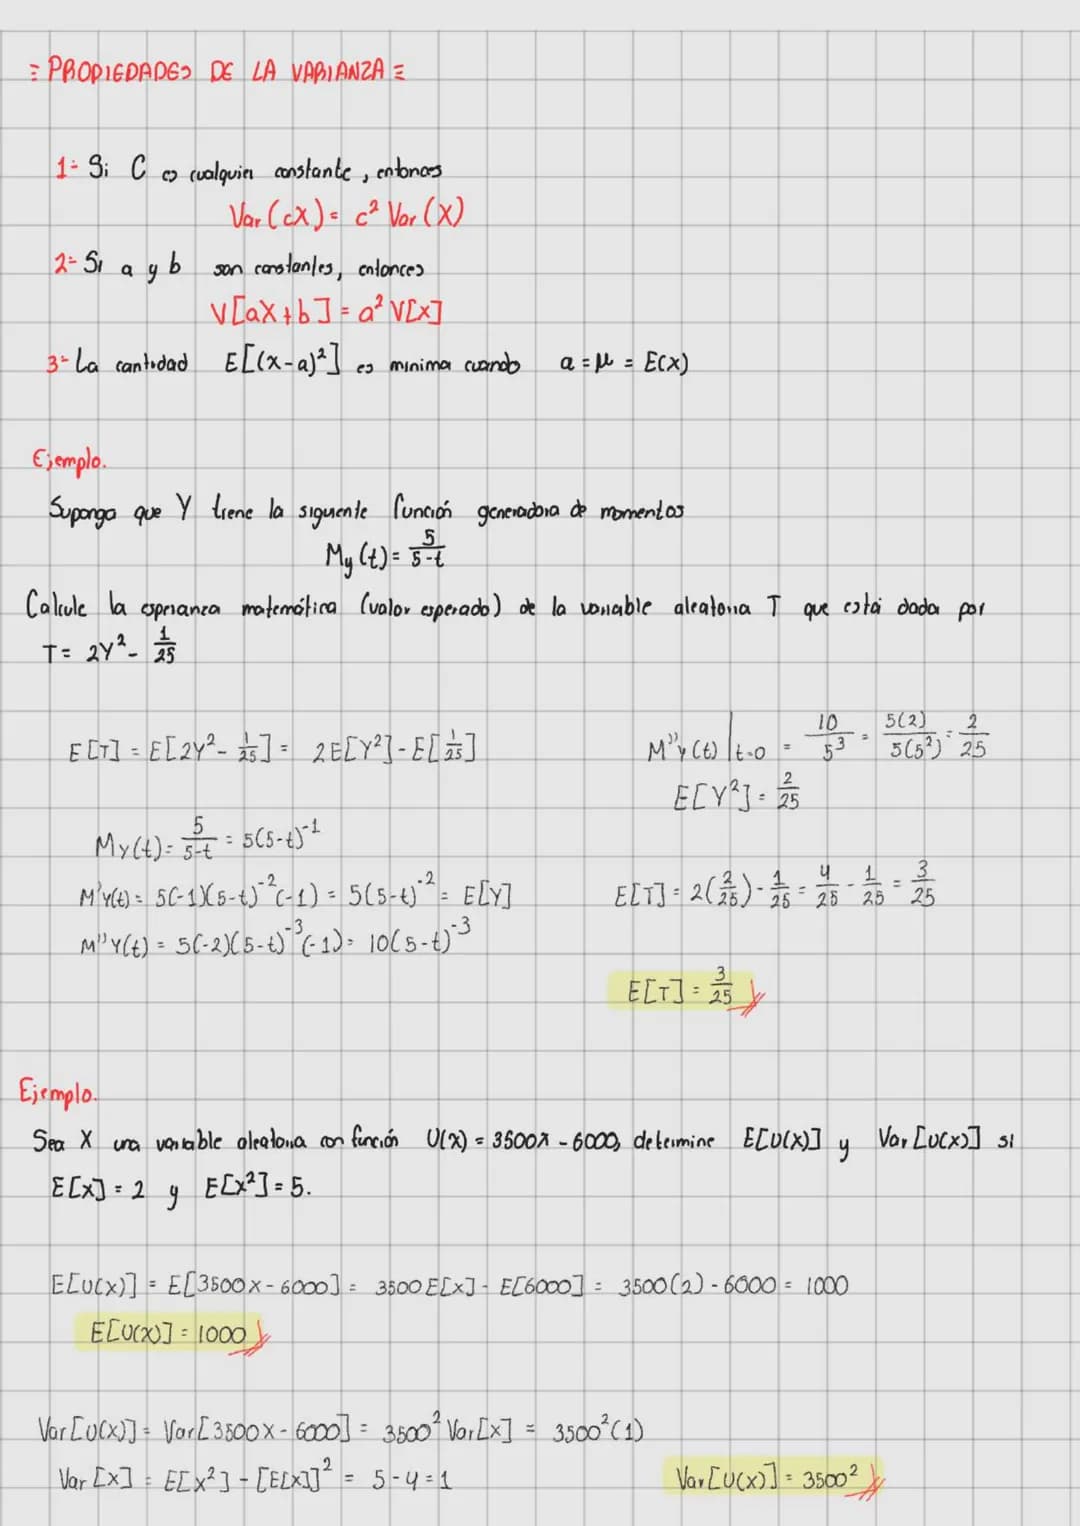 = PROPIEDADES DE LA VARIANZA =
1- Si C es cualquier constante, entonces
Var(cX) = c² Var(X)
2- Si a y b son constantes, entonces
V[aX+b] = a² V[X]
3- La cantidad E[(x-a)²] es minima cuando a = μ = E(x)
Ejemplo.
Suponga que Y tiene la siguiente función generadora de momentos
My(t) = 5/(5-t)
Calcule la esperanza matemática (valor esperado) de la variable aleatoria T que está dada por
T = 2Y² - 1/25
E[T] = E[2Y² - 1/25] = 2E[Y²] - E[1/25]
My(t) = 5/(5-t) = 5(5-t)⁻¹
M'y(t) = 5(-1)(5-t)⁻²(-1) = 5(5-t)⁻² = E[Y]
M''Y(t) = 5(-2)(5-t)⁻³(-1) = 10(5-t)⁻³
M''y(t)|t=0 = 10/5³ = 5(2)/5(5²) = 2/25
E[Y²] = 2/25
E[T] = 2(2/25) - 1/25 = 4/25 - 1/25 = 3/25
E[T] = 3/25
Ejemplo.
Sea X una variable aleatoria con función U(x) = 3500x - 6000, determine E[U(x)] y Var[U(x)] si
E[x] = 2 y E[x²] = 5.
E[U(x)] = E[3500x - 6000] = 3500 E[x] - E[6000] = 3500(2) - 6000 = 1000
E[U(x)] = 1000
Var[U(x)] = Var[3500x - 6000] = 3500² Var[x] = 3500²(1)
Var[x] = E[x²] - [E[x]]² = 5 - 4 = 1
Var[U(x)] = 3500²